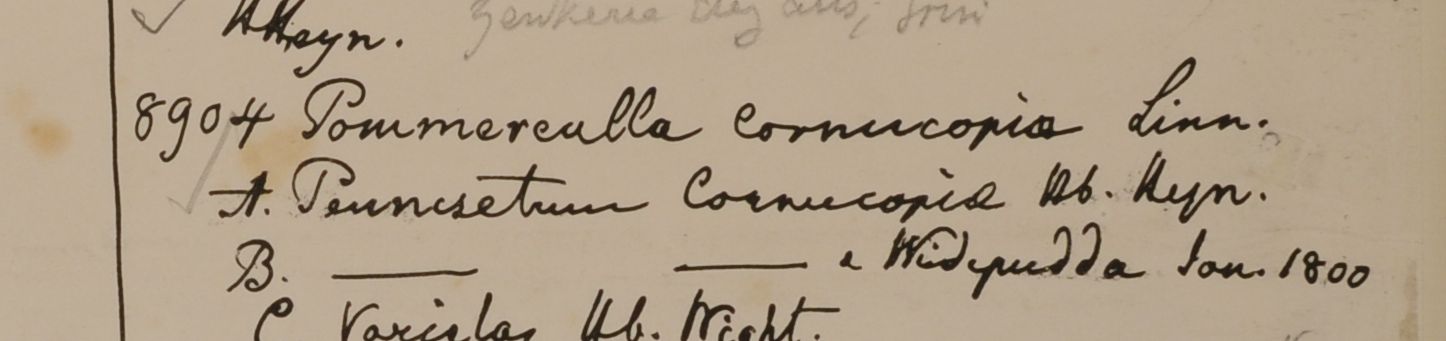 HHeyn. Zenkeria Elegans, Trin
8904 Pommereulla Cornucopiæ Linn.
A. Pennisetum Cornucopiæ Hb. Heyn.
B. ——— ——— e Widepudda Jan. 1800
C Hb. Wight.